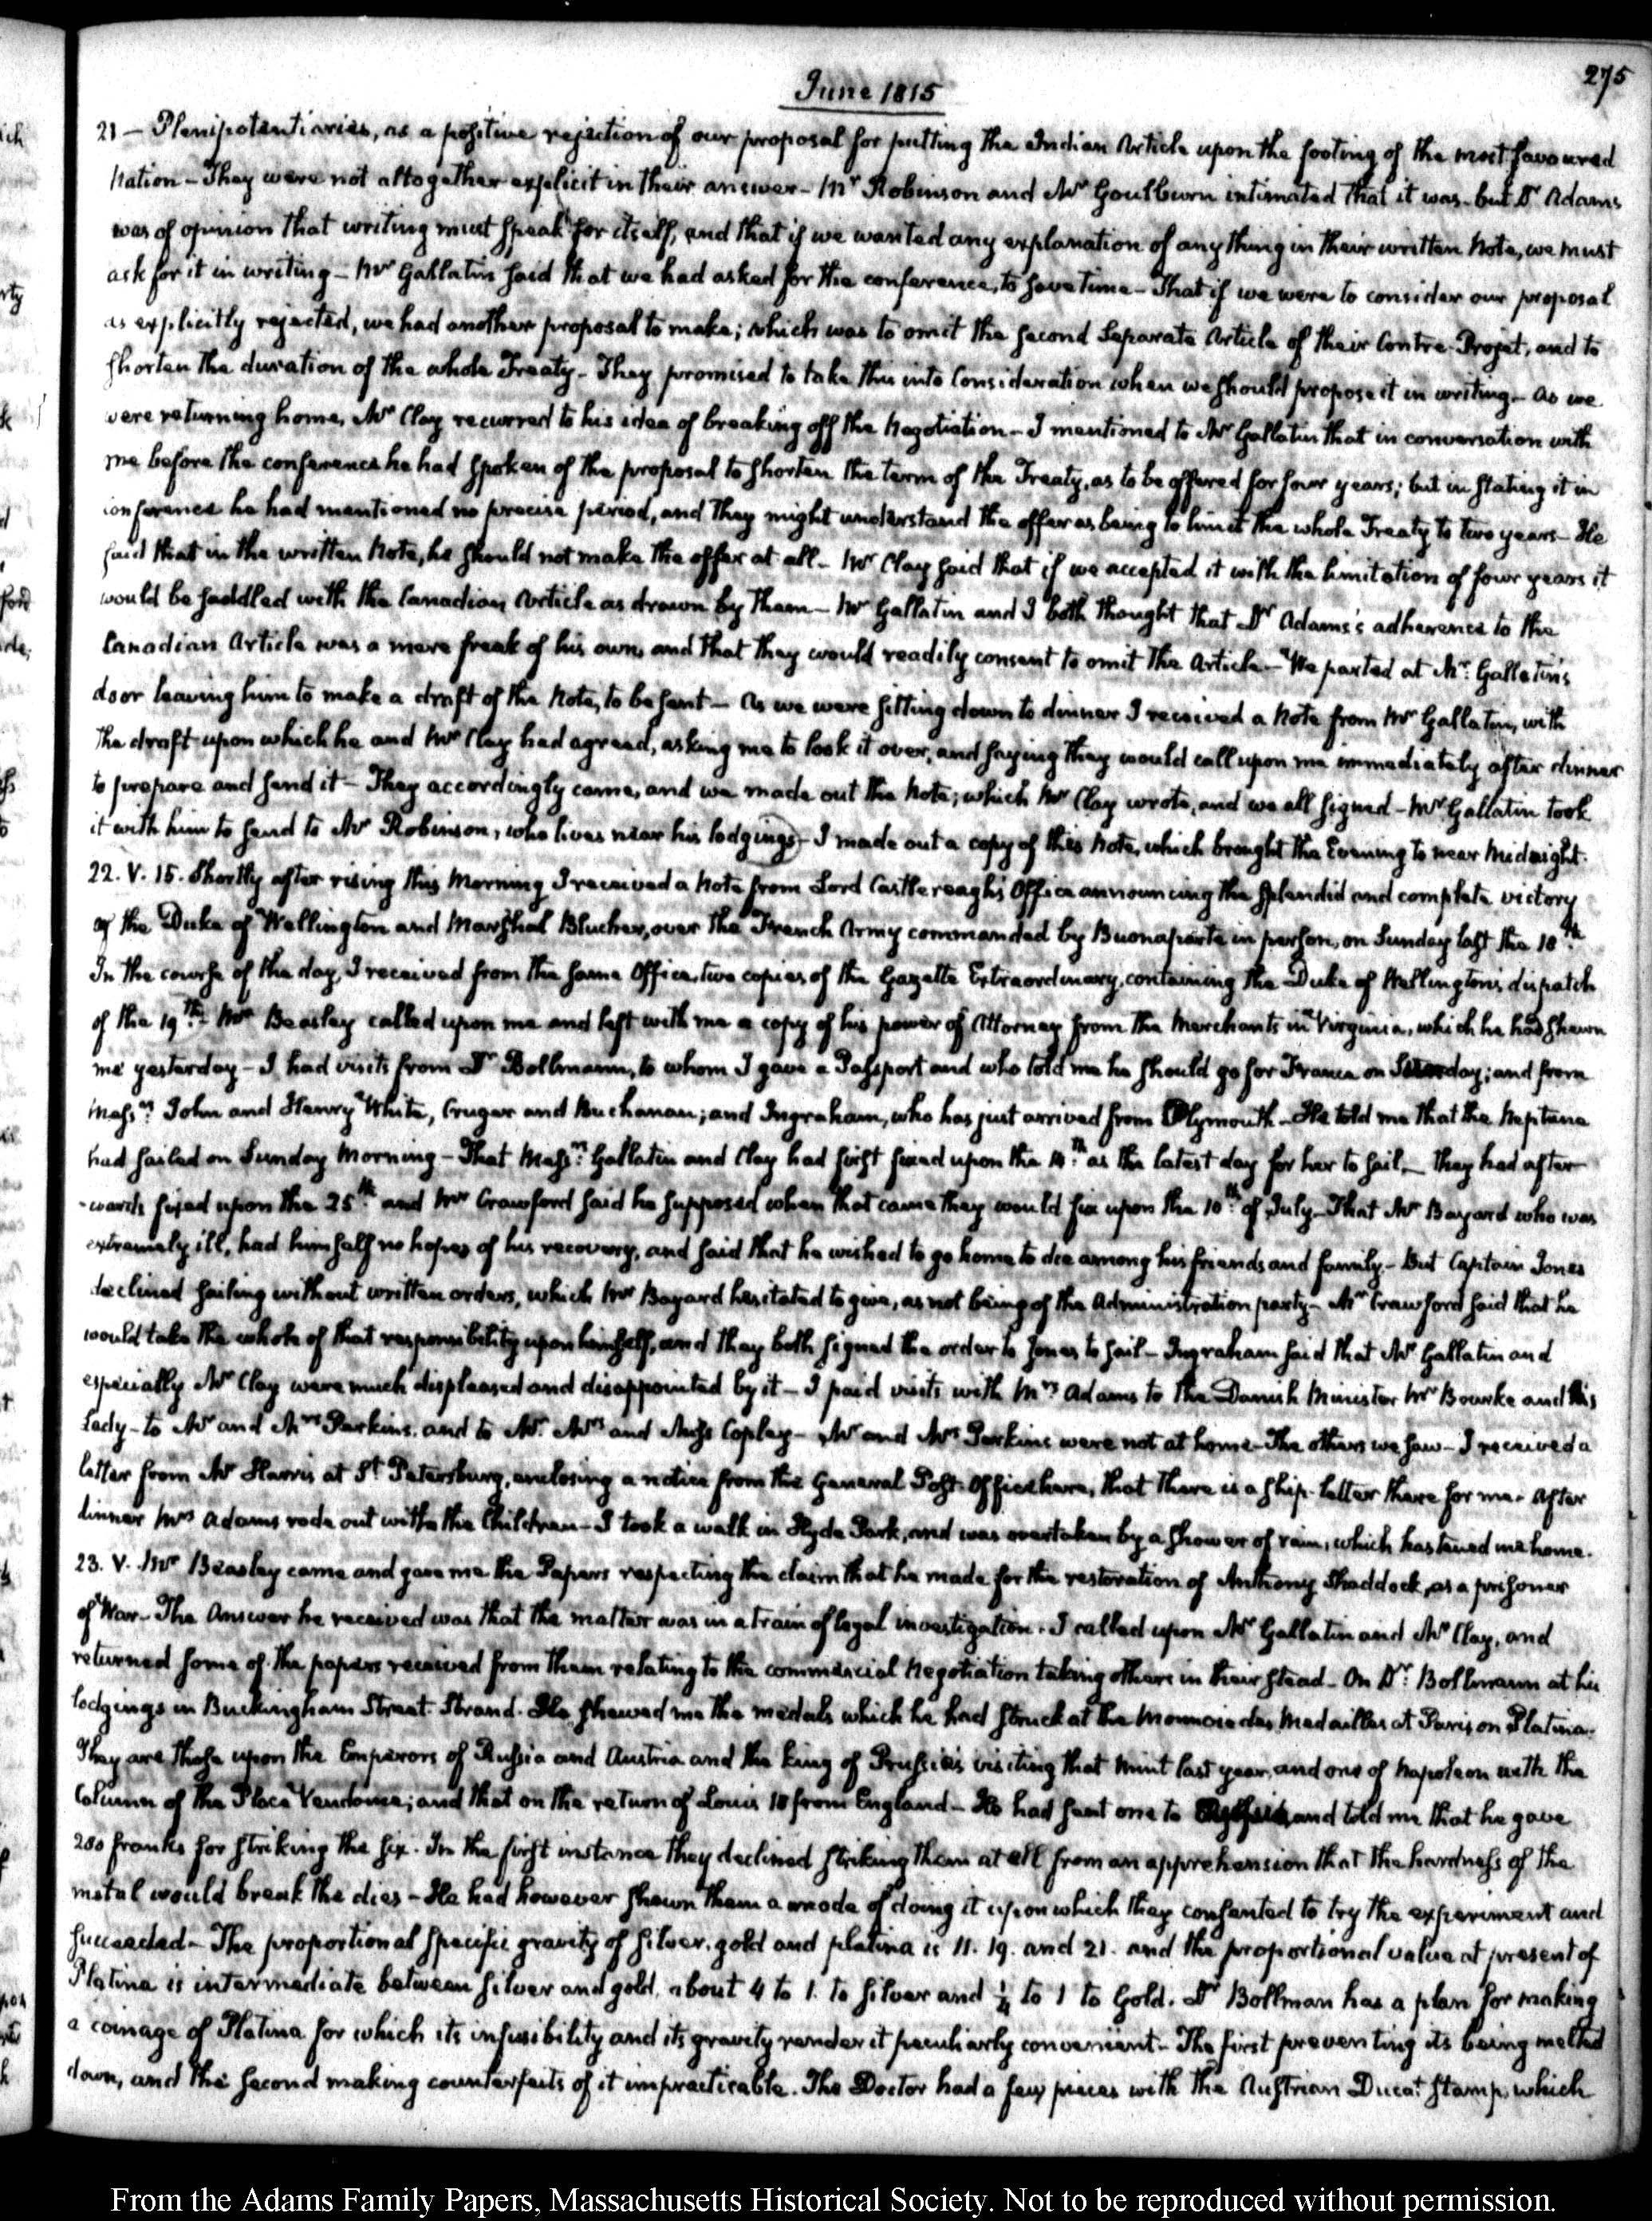 275
June 1815
21 — Plenipotentiaries, as a positive rejection of our proposal for putting the Indian Article upon the footing of the most favoured
Nation — They were not altogether explicit in their answer — Mr Robinson and Mr Goulburn intimated that it was — but Dr Adams
was of opinion that writing must speak for itself, and that if we wanted any explanation of any thing in their written Note, we must
ask for it in writing — Mr Gallatin said that we had asked for the conference, to save time — That if we were to consider our proposal
as explicitly rejected, we had another proposal to make; which was to omit the second Separate Article of their Contre-Projet, and to
shorten the duration of the whole Treaty — They promised to take this into Consideration when we should propose it in writing — As we
were returning home, Mr Clay recurred to his idea of breaking off the Negotiation — I mentioned to Mr Gallatin that in conversation with
me before the conference he had spoken of the proposal to shorten the term of the Treaty, as to be offered for four years; but in stating it in
conference he had mentioned no precise period, and they might understand the offer as being to limit the whole Treaty to two years — He
said that in the written Note, he should not make the offer at all — Mr Clay said that if we accepted it with the limitation of four years it
would be saddled with the Canadian Article as drawn by them — Mr Gallatin and I both thought that Dr Adams's adherence to the
Canadian Article was a mere freak of his own, and that they would readily consent to omit the Article — We parted at Mr. Gallatin's
door leaving him to make a draft of the Note, to be sent — As we were sitting down to dinner I received a Note from Mr Gallatin, with
the draft upon which he and Mr Clay had agreed, asking me to look it over, and saying they would call upon me immediately after dinner
to prepare and send it — They accordingly came, and we made out the Note; which Mr Clay wrote, and we all signed — Mr Gallatin took
it with him to send to Mr Robinson, who lives near his lodgings — I made out a copy of this Note, which brought the Evening to near Midnight.
22. V. 15. Shortly after rising this Morning I received a Note from Lord Castlereagh's Office announcing the splendid and complete victory
of the Duke of Wellington and Marshal Blucher, over the French Army commanded by Buonaparte in person, on Sunday last the 18th
In the course of the day, I received from the same Office, two copies of the Gazette Extraordinary, containing the Duke of Wellington's dispatch
of the 19th — Mr Beasley called upon me and left with me a copy of his power of Attorney from the Merchants in Virginia, which he had shewn
me yesterday — I had visits from Dr Bollmann, to whom I gave a Passport and who told me he should go for France on day; and from
Messrs John and Henry White, Cruger and Buchanan; and Ingraham, who has just arrived from Plymouth — He told me that the Neptune
had sailed on Sunday Morning — That Messrs Gallatin and Clay had first fixed upon the th as the latest day for her to sail — they had after
-wards fixed upon the 25th and Mr Crawford said he supposed when that came they would fix upon the 10th of July — That Mr Bayard who was
extremely ill, had himself no hopes of his recovery, and said that he wished to go home to die among his friends and family — But Captain Jones
declined sailing without written orders, which Mr Bayard hesitated to give, as not being of the Administration party — Mr Crawford said that he
would take the whole of that responsibility upon himself, and they both signed the order to Jones to sail — Ingraham said that Mr Gallatin and
especially Mr Clay were much displeased and disappointed by it — I paid visits with Mrs Adams to the Danish Minister Mr Bourke and his
Lady — to Mr and Mrs Perkins, and to Mr. Mrs and Miss Copley — Mr and Mrs Perkins were not at home — The others we saw — I received a
letter from Mr Harris at St Petersburg, enclosing a notice from the General Post-Office here, that there is a ship-letter there for me — After
dinner Mrs Adams rode out with the Children — I took a walk in Hyde Park, and was overtaken by a shower of rain, which hastened me home.
23. V. Mr Beasley came and gave me the Papers respecting the claim that he made for the restoration of Anthony Shaddock, as a prisoner
of War — The Answer he received was that the matter was in a train of legal investigation. I called upon Mr Gallatin and Mr Clay, and
returned some of the papers received from them relating to the commercial Negotiation taking others in their stead — On Dr. Bollmann at his
lodgings in Buckingham Street. Strand. He shewed me the medals which he had struck at the Monnoie des Medailles at Paris on Platina.
They are those upon the Emperors of Russia and Austria and the King of Prussia's visiting that Mint last year, and one of Napoleon with the
Column of the Place Vendome; and that on the return of Louis 18 from England — He had sent one to and told me that he gave
280 franks for striking the six. In the first instance they declined striking them at all from an apprehension that the hardness of the
metal would break the dies — He had however shewn them a mode of doing it upon which they consented to try the experiment and
succeeded — The proportional specific gravity of silver, gold and platina is 11. 19. and 21. and the proportional value at present of
Platina is intermediate between silver and gold, about 4 to 1. to silver and ¼ to 1 to Gold. Dr Bollman has a plan for making
a coinage of Platina for which its infusibility and its gravity render it peculiarly convenient — The first preventing its being melted
down, and the second making counterfeits of it impracticable. The Doctor had a few pieces with the Austrian Ducat stamp, which
From the Adams Family Papers, Massachusetts Historical Society. Not to be reproduced without permission.